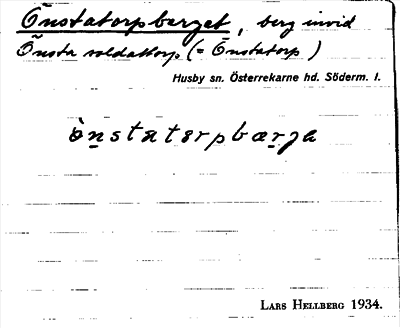 Önstatorpsberget, berg invid
Önsta soldattorp (= Önstatorp)
Husby sn. Österrekarne hd. Söderm. l.
ònstatorpbærja
LARS HELLBERG 1934.